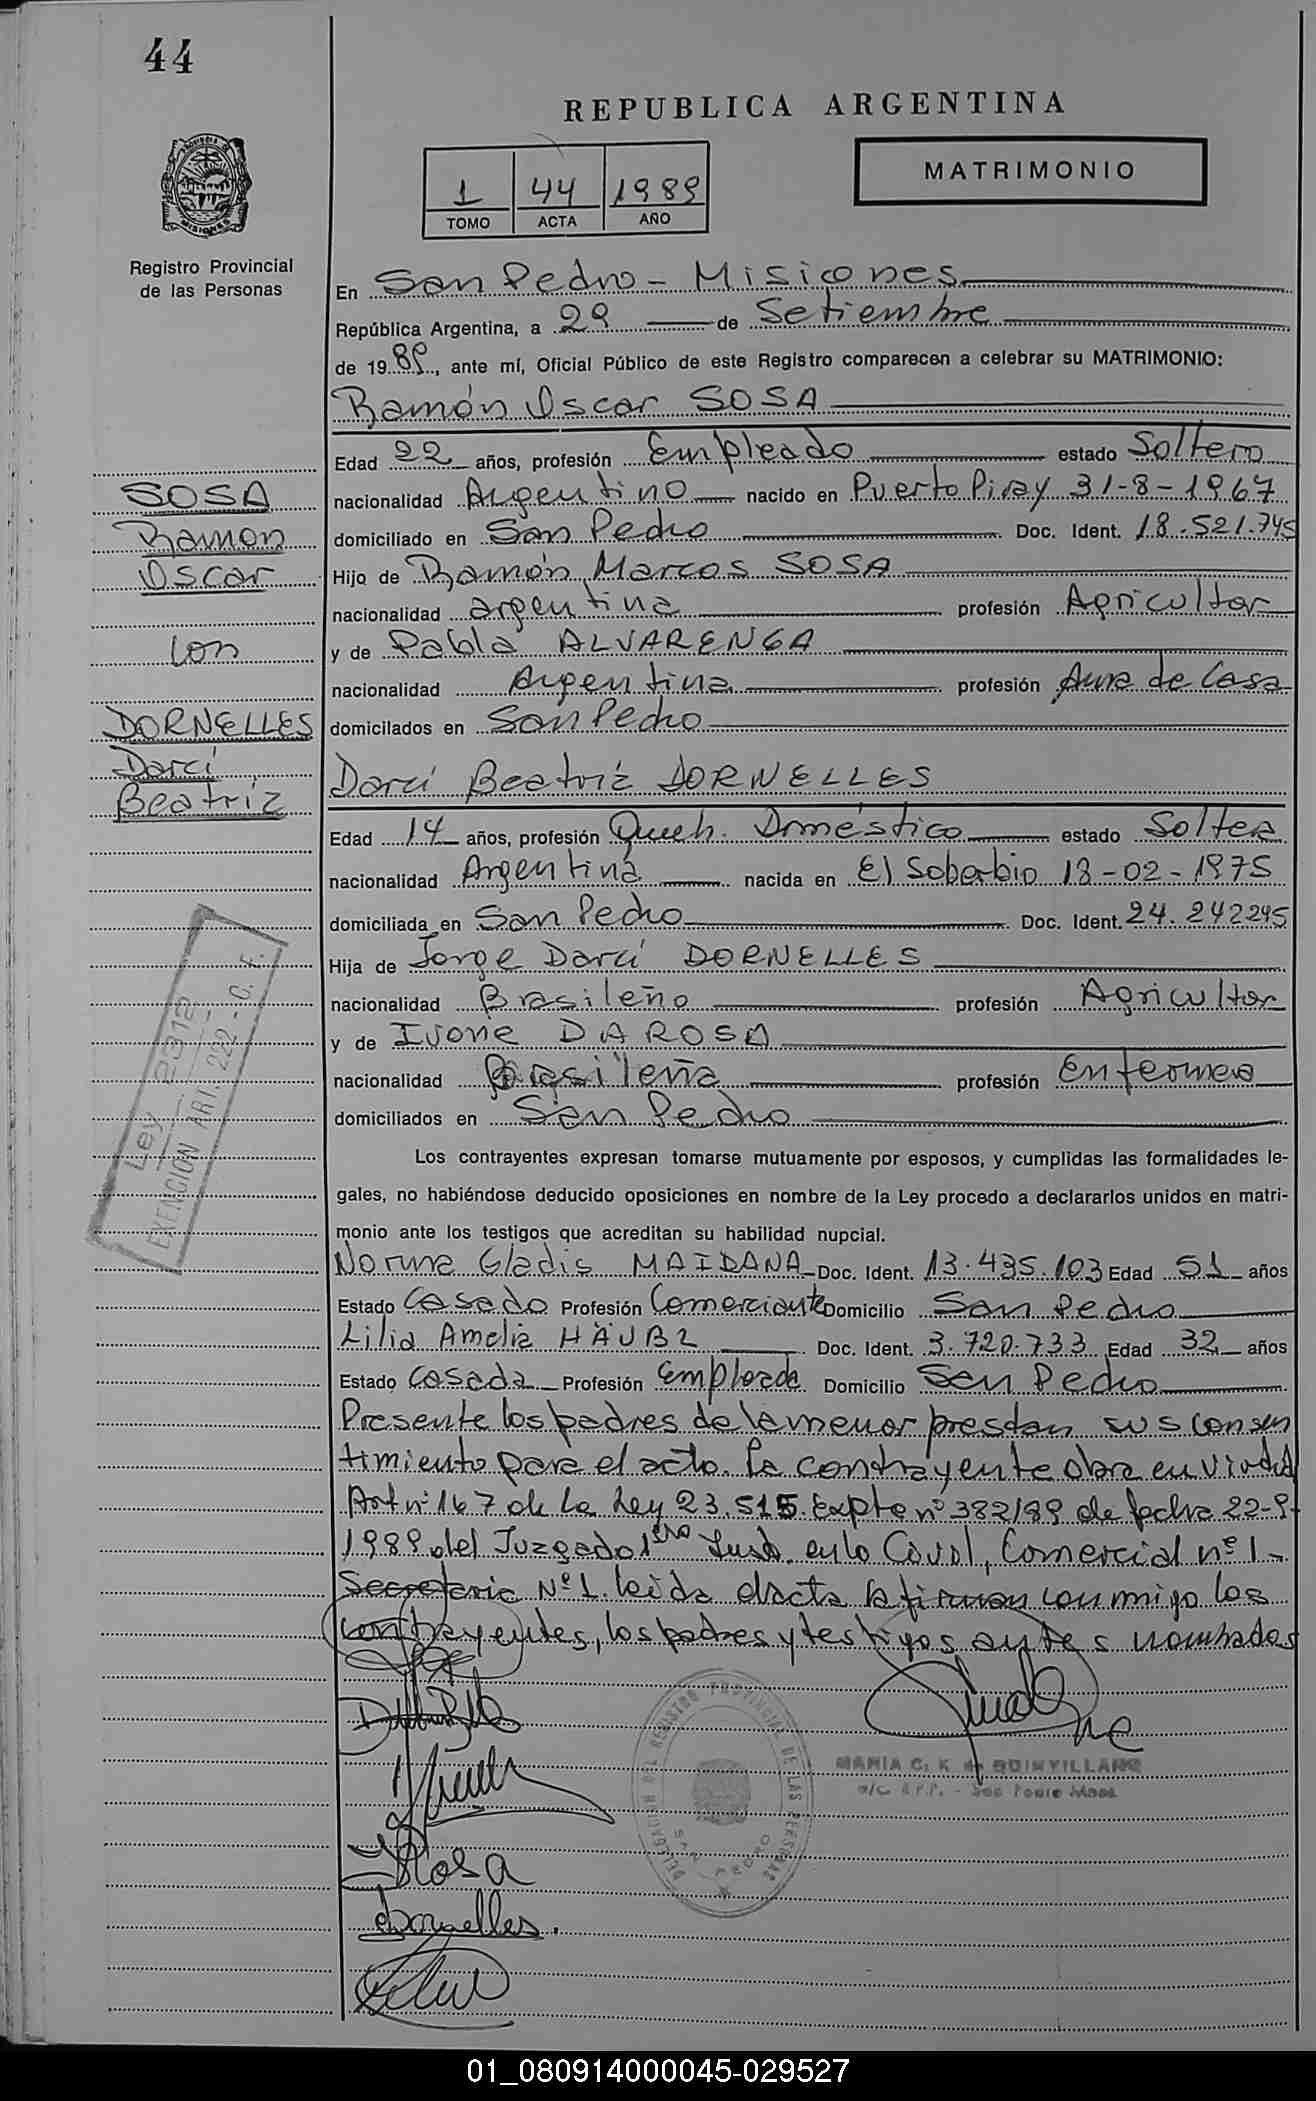 44
REPUBLICA ARGENTINA
1 44 1989
TOMO ACTA AÑO
MATRIMONIO
PROVINCIA DE
MISIONES
Registro Provincial
de las Personas
En San Pedro - Misiones
República Argentina, a 29 de Setiembre
de 1989, ante mí, Oficial Público de este Registro comparecen a celebrar su MATRIMONIO:
Ramón Oscar SOSA
Edad 22 años, profesión Empleado estado Soltero
SOSA
nacionalidad Argentino nacido en Puerto Piray 31-8-1967
Ramon
domiciliado en San Pedro Doc. Ident. 18.521.745
Oscar
Hijo de Ramón Marcos SOSA
nacionalidad argentina profesión Agricultor
con
y de Pabla ALVARENGA
nacionalidad Argentina profesión Ama de Casa
DORNELLES
domicilados en San Pedro
Darci
Beatríz
Darcí Beatríz DORNELLES
Edad 14 años, profesión Queh. Doméstico estado Soltera
nacionalidad Argentina nacida en El Soberbio 13-02-1975
domiciliada en San Pedro Doc. Ident. 24.242245
Hija de Jorge Darcí DORNELLES
nacionalidad Brasileño profesión Agricultor
y de Ivone DA ROSA
nacionalidad Brasileña profesión Enfermera
domiciliados en San Pedro
Ley 23912
EXENCION ART. 222 - C. F.
Los contrayentes expresan tomarse mutuamente por esposos, y cumplidas las formalidades le-
gales, no habiéndose deducido oposiciones en nombre de la Ley procedo a declararlos unidos en matri-
monio ante los testigos que acreditan su habilidad nupcial.
Norma Gladis MAIDANA Doc. Ident. 13.435.103 Edad 51 años
Estado Casado Profesión Comerciante Domicilio San Pedro
Lilia Amelia HAUBL Doc. Ident. 3.720.733 Edad 32 años
Estado Casada Profesión Empleada Domicilio San Pedro
Presente los padres de la menor prestan sus consen
timiento para el acto. La contrayente obra en virtud
Art nº 167 de la Ley 23.515. Expte nº 382/89 de fecha 22-9-
1989 del Juzgado 1ero Inst. en lo Civil, Comercial nº 1-
Secretaria Nº 1. leida el acta la firman conmigo los
contrayentes, los padres y testigos antes nombrados
DELEGACION DEL REGISTRO PROVINCIAL DE LAS PERSONAS
SAN PEDRO
MARIA C. K. de
a/c R.P.P. - San Pedro Mnes.
IRosa
Dornelles.
01_080914000045-029527